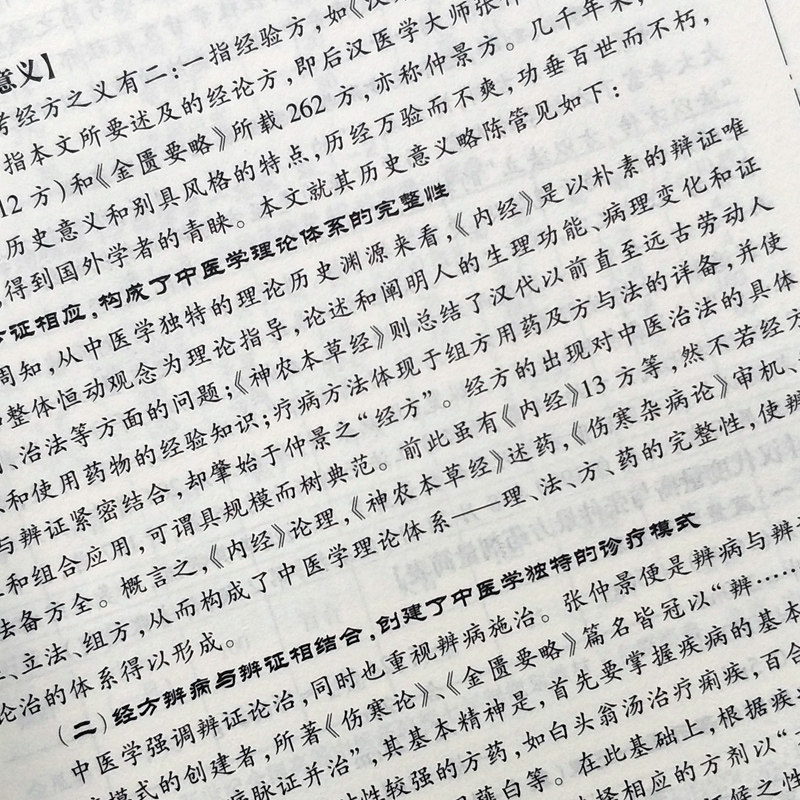 指经验方,如《汉
意义】
考经方之义有二:一指经验方,如《
指本文所要述及的经论方,即后汉医学大师张仲
12方)和《金匮要略》所载262方,亦称仲景方。几千年来,
历史意义和别具风格的特点,历经万验而不爽,功垂百世而不朽,
,得到国外学者的青睐。本文就其历史意义略陈管见如下:
证相应,构成了中医学理论体系的完整性
周知,从中医学独特的理论历史渊源来看,《内经》是以朴素的辩证唯
整体恒动观念为理论指导,论述和阐明人的生理功能、病理变化和证
、治法等方面的问题;《神农本草经》则总结了汉代以前直至远古劳动人
和使用药物的经验知识;疗病方法体现于组方用药及方与法的详备,并使
与辨证紧密结合,却肇始于仲景之“经方”。经方的出现对中医治法的具体
和组合应用,可谓具规模而树典范。前此虽有《内经》13方等,然不若经方
法备方全。概言之,《内经》论理,《神农本草经》述药,《伤寒杂病论》审机、
、立法、组方,从而构成了中医学理论体系——理、法、方、药的完整性,使辨
论治的体系得以形成。
(二)经方辨病与辨证相结合,创建了中医学独特的诊疗模式
中医学强调辨证论治,同时也重视辨病施治。张仲景便是辨病与辨
模式的创建者,所著《伤寒论》、《金匮要略》篇名皆冠以“辨……
病脉证并治”,其基本精神是,首先要掌握疾病的基本
性较强的方药,如白头翁汤治疗痢疾,百合
薤白等。在此基础上,根据疾
择相应的方剂以“
候之性